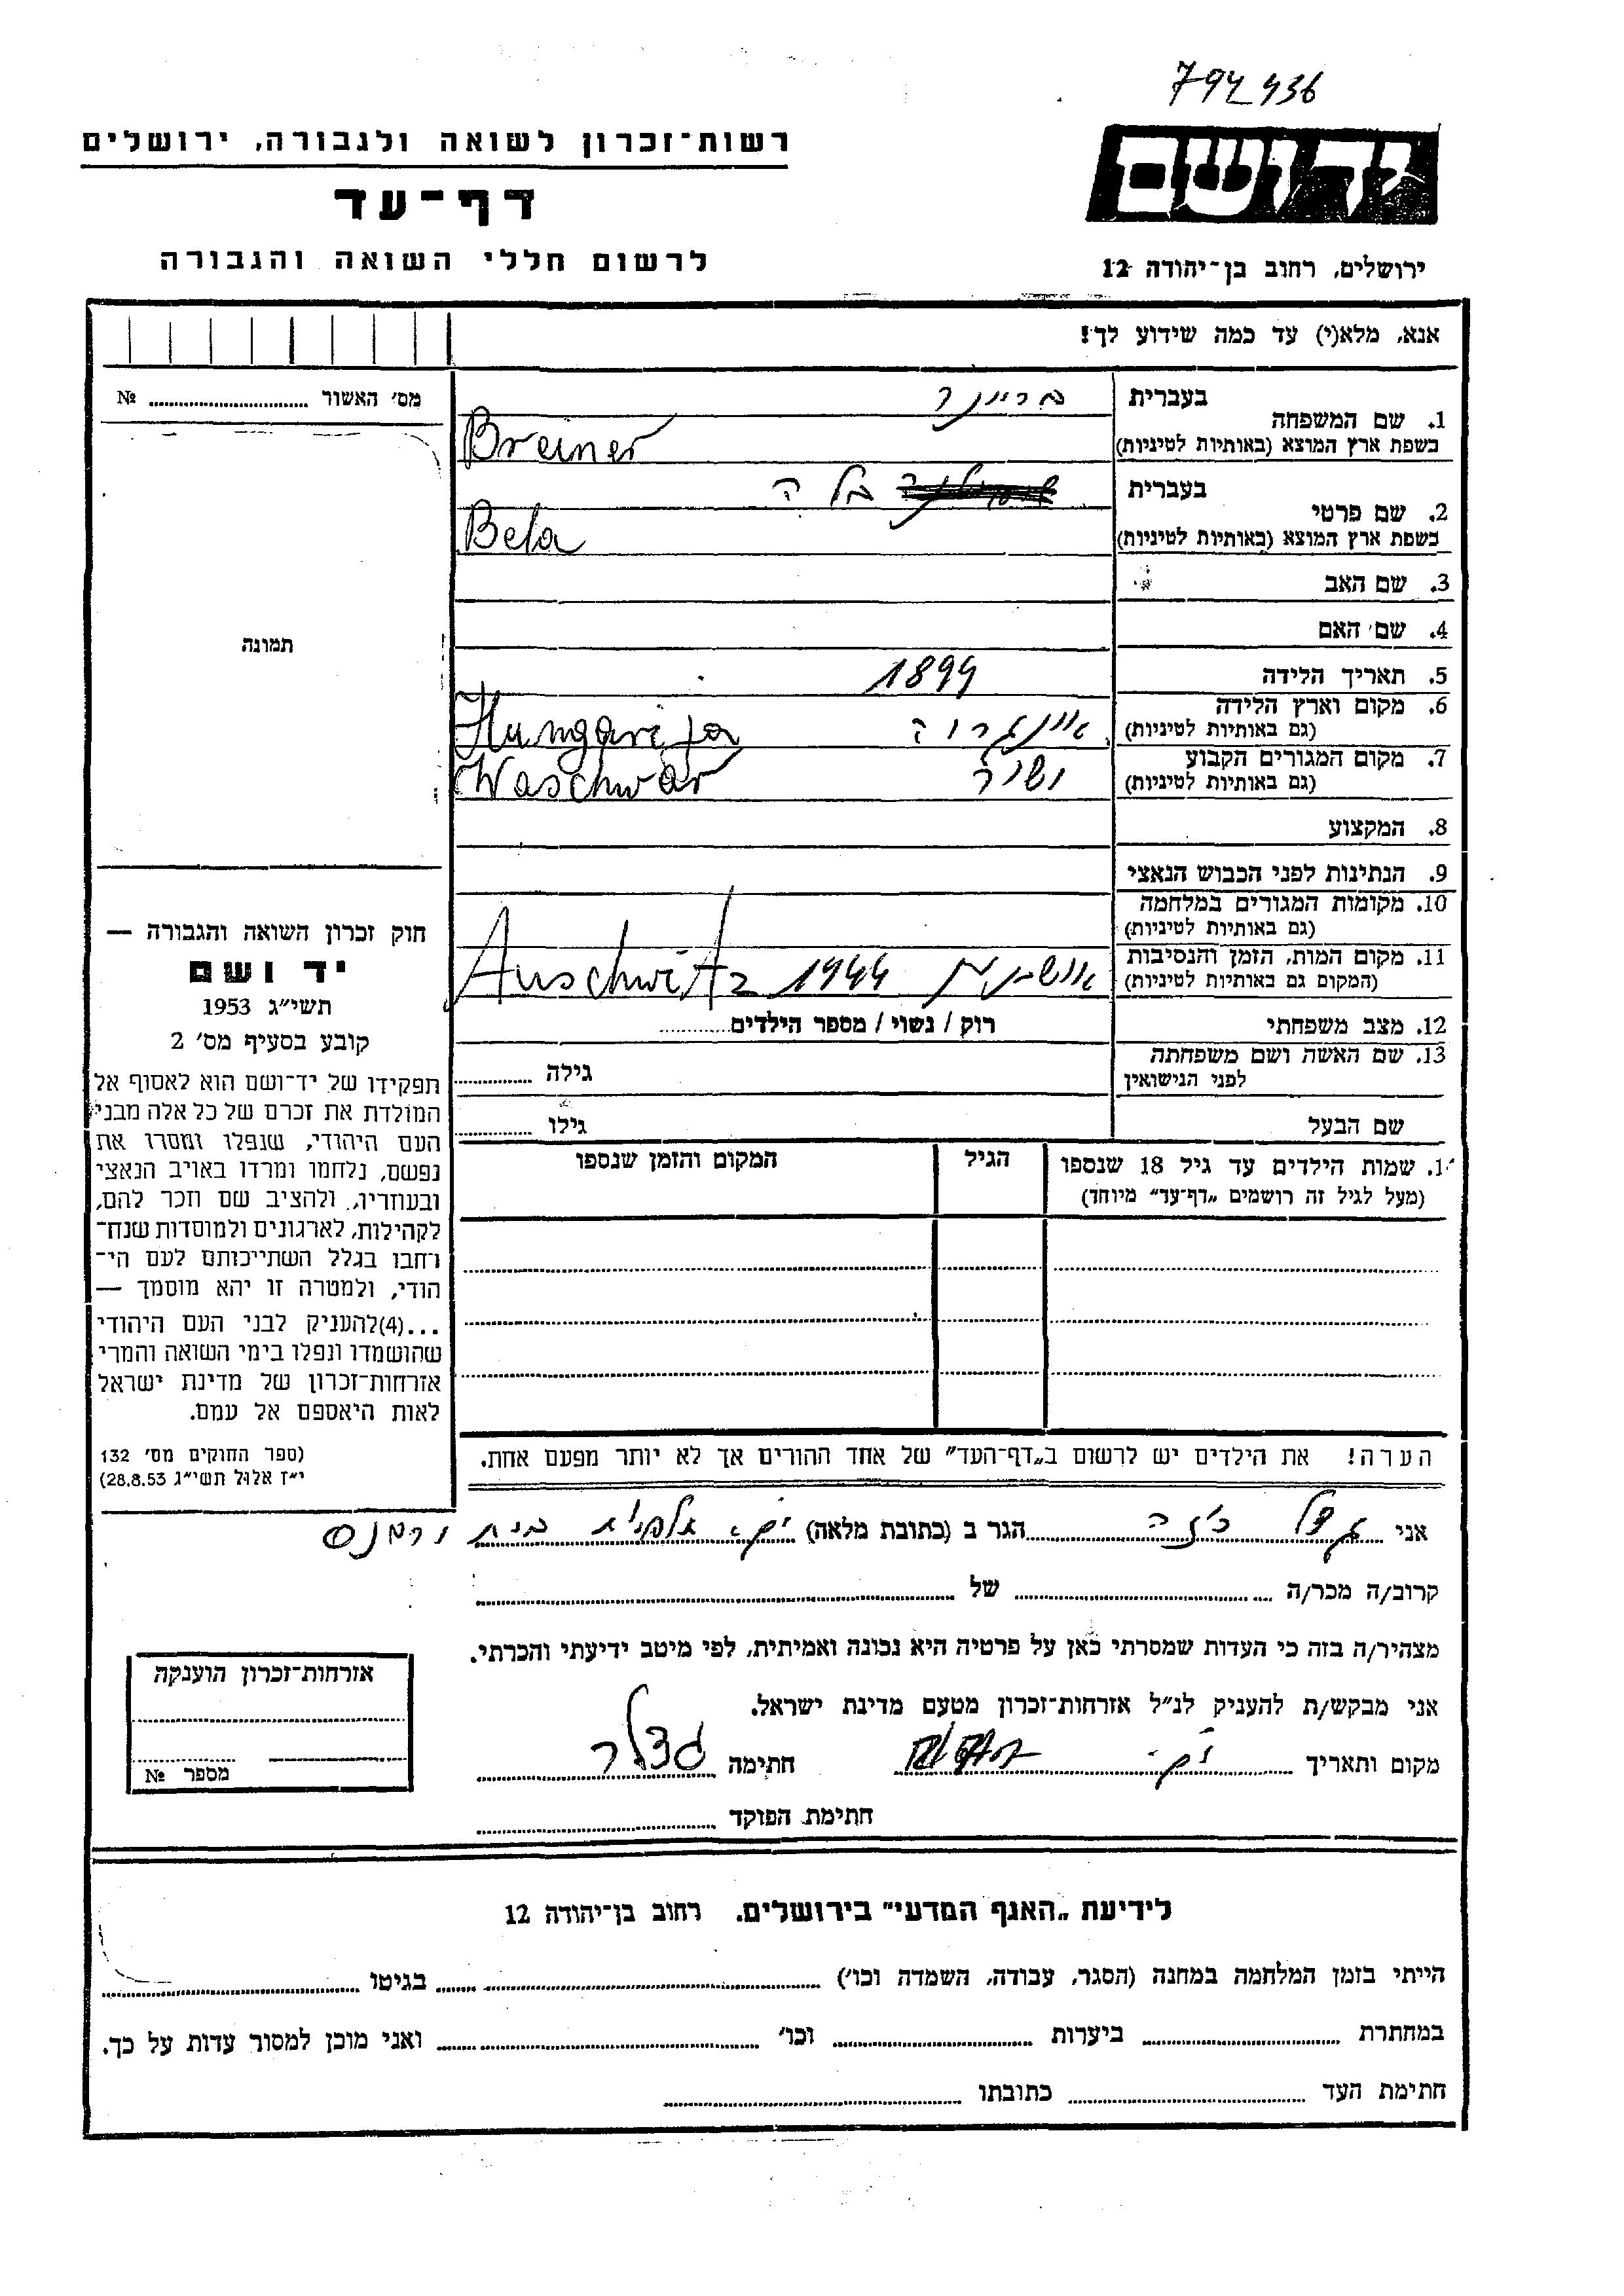 794436
ידושם
רשות־זכרון לשואה ולגבורה, ירושלים
דף־עד
לרשום חללי השואה והגבורה
ירושלים, רחוב בן־יהודה 12
אנא, מלא(י) עד כמה שידוע לך!
מס׳ האשור № 
תמונה
1. שם המשפחה
בעברית
בריינר
בשפת ארץ המוצא (באותיות לטיניות)
Breiner
2. שם פרטי
בעברית
בלה
בשפת ארץ המוצא (באותיות לטיניות)
Bela
3. שם האב
4. שם האם
5. תאריך הלידה
1899
6. מקום וארץ הלידה
(גם באותיות לטיניות)
Hungarija
7. מקום המגורים הקבוע
(גם באותיות לטיניות)
Waschwar
8. המקצוע
9. הנתינות לפני הכבוש הנאצי
10. מקומות המגורים במלחמה
(גם באותיות לטיניות)
11. מקום המות, הזמן והנסיבות
(המקום גם באותיות לטיניות)
אושביץ 1944 Auschwitz
12. מצב משפחתי
רוק / נשוי / מספר הילדים
13. שם האשה ושם משפחתה
לפני הנישואין
גילה
שם הבעל
גילו
1. שמות הילדים עד גיל 18 שנספו
(מעל לגיל זה רושמים „דף־עד״ מיוחד)
הגיל
המקום והזמן שנספו
חוק זכרון השואה והגבורה —
יד ושם
תשי״ג 1953
קובע בסעיף מס׳ 2
תפקידו של יד־ושם הוא לאסוף אל
המולדת את זכרם של כל אלה מבני
העם היהודי, שנפלו ומסרו את
נפשם, נלחמו ומרדו באויב הנאצי
ובעוזריו, ולהציב שם וזכר להם,
לקהילות, לארגונים ולמוסדות שנח־
רבו בגלל השתייכותם לעם הי־
הודי, ולמטרה זו יהא מוסמך —
...(4)להעניק לבני העם היהודי
שהושמדו ונפלו בימי השואה והמרי
אזרחות־זכרון של מדינת ישראל
לאות היאספם אל עמם.
(ספר החוקים מס׳ 132
י״ז אלול תשי״ג 28.8.53)
הערה! את הילדים יש לרשום ב„דף־העד״ של אחד ההורים אך לא יותר מפעם אחת.
אני הגר ב (כתובת מלאה)
קרוב/ה מכר/ה של
מצהיר/ה בזה כי העדות שמסרתי כאן על פרטיה היא נכונה ואמיתית, לפי מיטב ידיעתי והכרתי.
אני מבקש/ת להעניק לנ״ל אזרחות־זכרון מטעם מדינת ישראל.
מקום ותאריך חתימה
חתימת הפוקד
אזרחות־זכרון הוענקה
מספר №
לידיעת „האגף המדעי״ בירושלים. רחוב בן־יהודה 12
הייתי בזמן המלחמה במחנה (הסגר, עבודה, השמדה וכו׳) בגיטו
במחתרת ביערות וכו׳ ואני מוכן למסור עדות על כך.
חתימת העד כתובתו